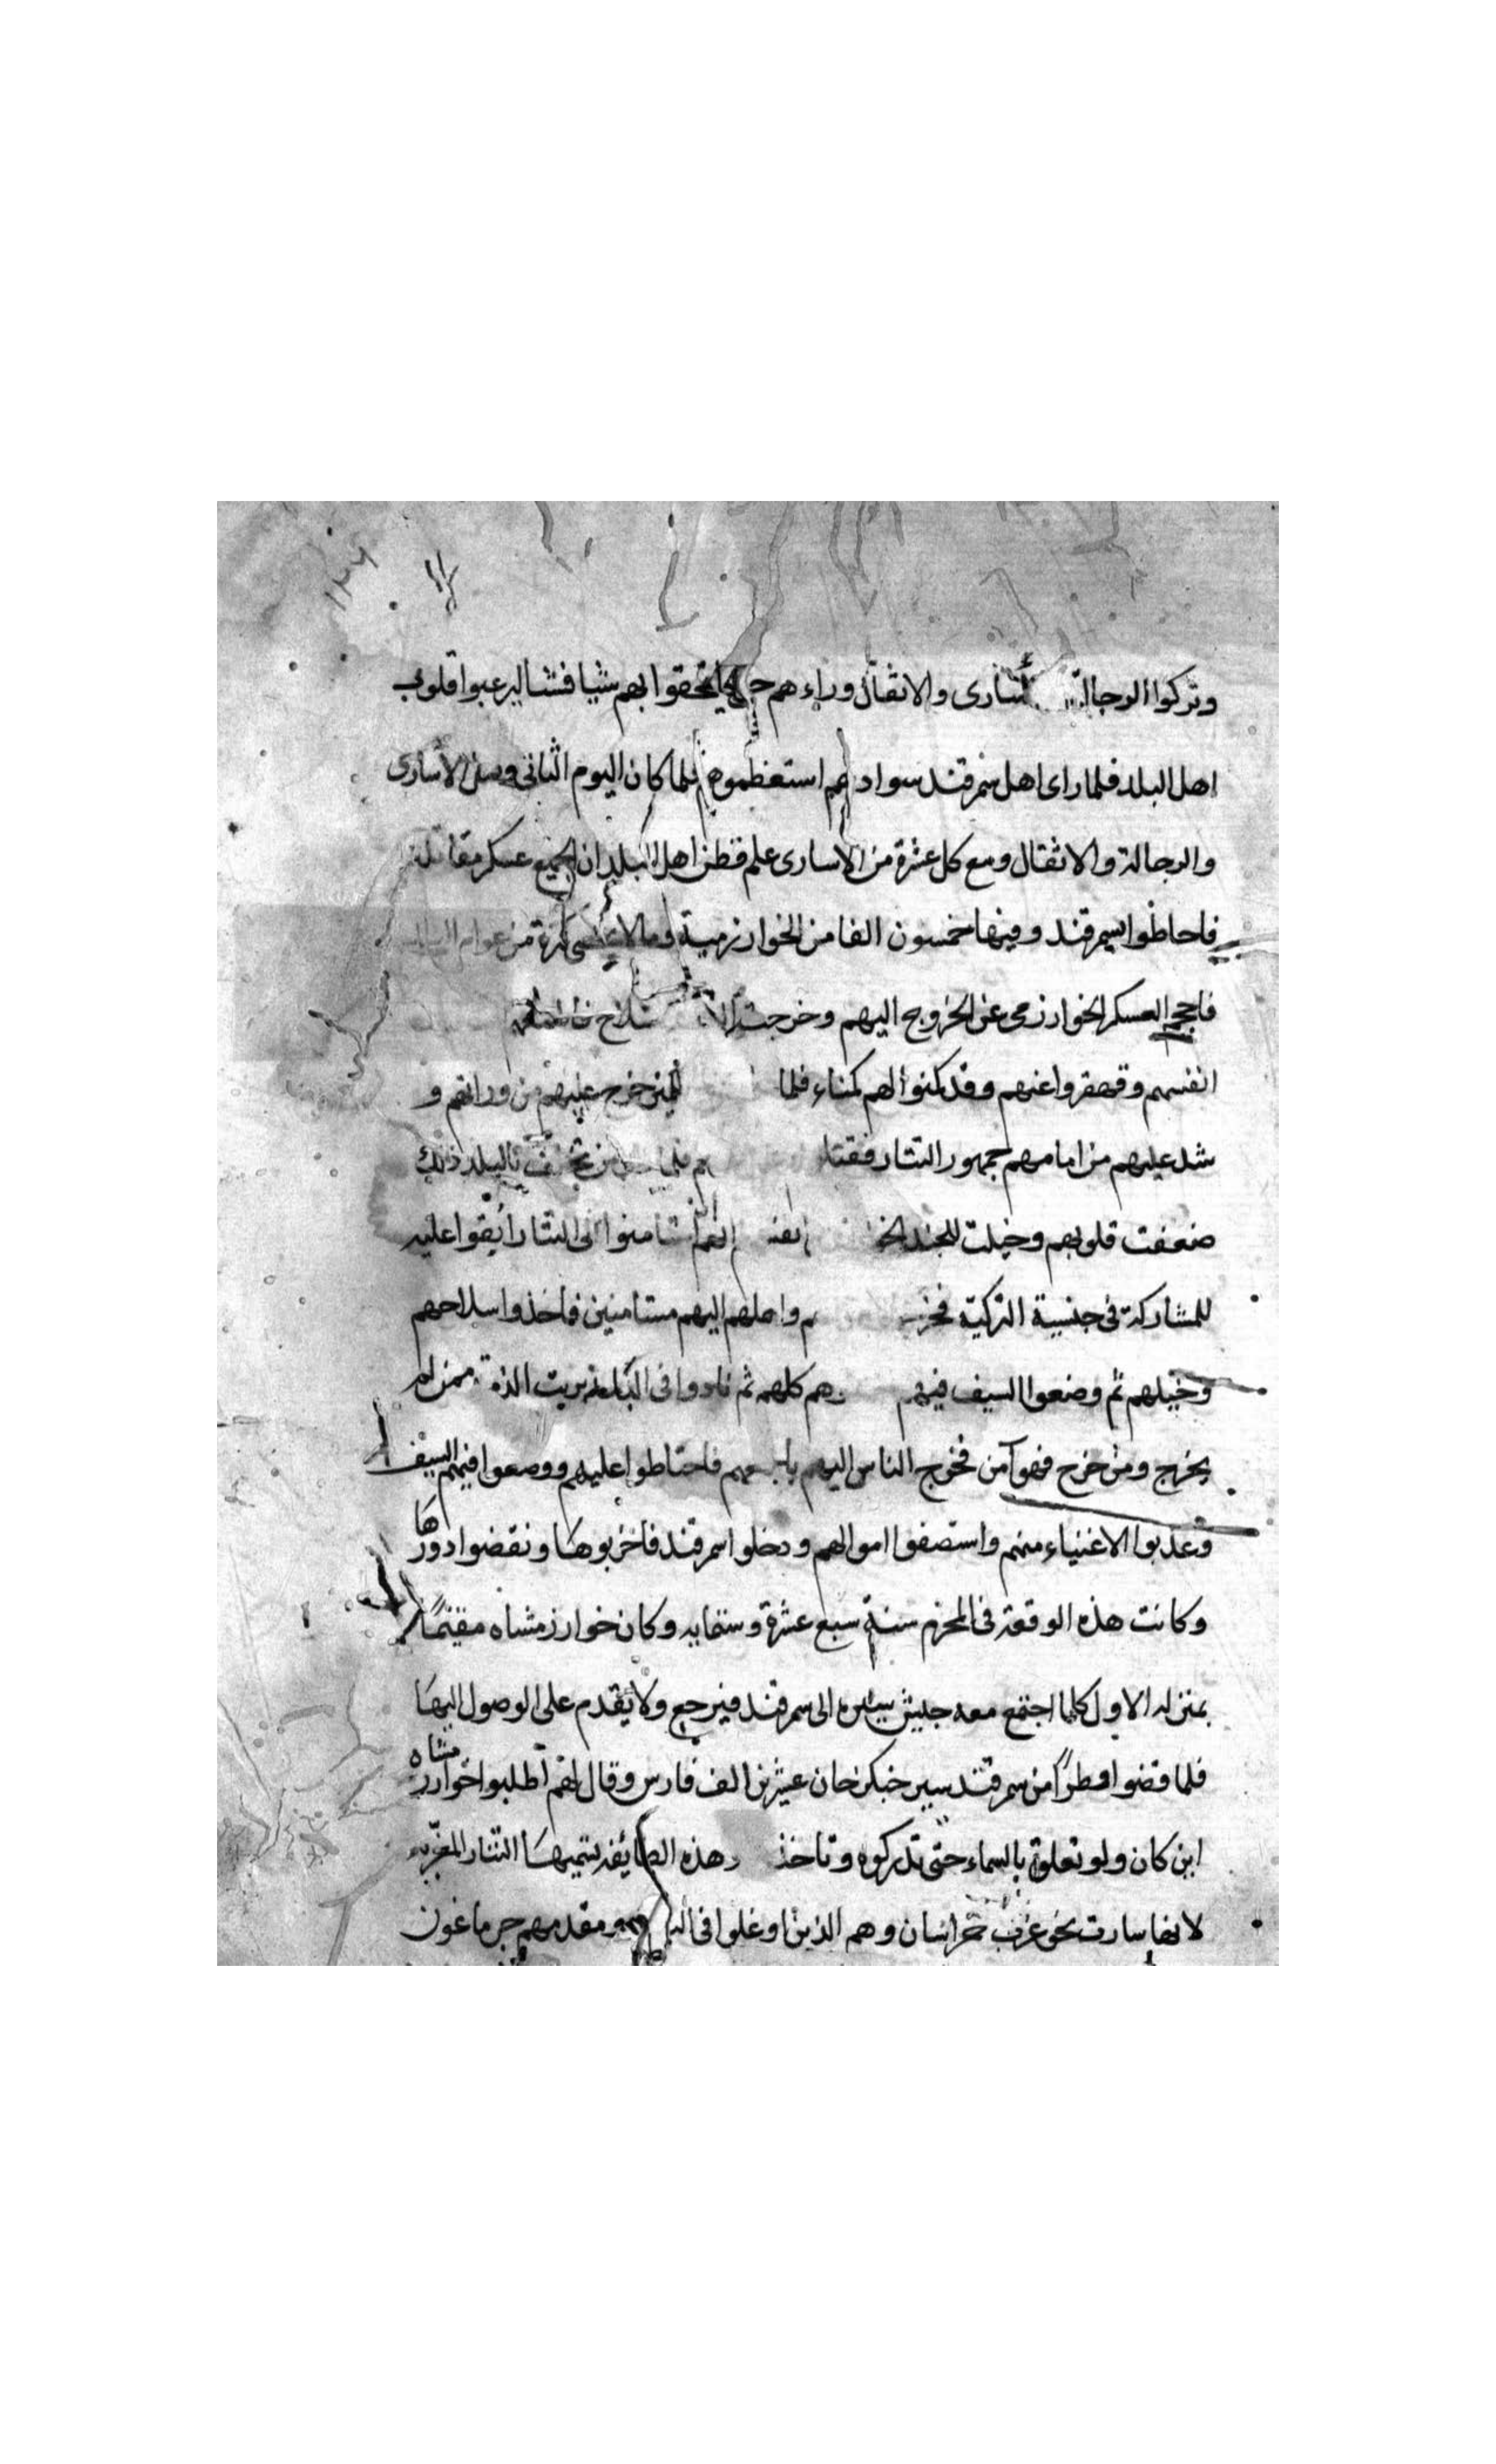 ١٢٤
وتركوا الرجالة والاسارى والاثقال وراءهم حتى يلتحقوا بهم شيا فشيا ليرعبوا قلوب
اهل البلد فلما راى اهل سمرقند سوادهم استعظموهم فلما كان اليوم الثانى وصل الأسارى
والرجالة والاثقال ومع كل عشرة من الاسارى علم فظن اهل البلد ان الجميع عسكر مقاتلة
فاحاطوا بسمرقند وفيها خمسون الفا من الخوارزمية وما لا يحصى كثرة من عوام البلد
فاحجم العسكر الخوارزمى عن الخروج اليهم وخرجت سلاح
انفسهم وقهقروا عنهم وقد كمنوا لهم كمناء فلما الكمين خرج عليهم من ورائهم و
شد عليهم من امامهم جمهور التتار فقتلوا فلما تخلف بالبلد ذلك
ضعفت قلوبهم وخيلت للجند انفسهم انهم استامنوا الى التتار ابقوا عليهم
للمشاركة فى جنسية التركية واهلهم اليهم مستامنين فاخذوا سلاحهم
وخيلهم ثم وضعوا السيف فيهم كلهم ثم نادوا فى البلد بريت الذمة ممن لم
يخرج ومن خرج فهو آمن فخرج الناس اليهم باجمعهم فاحتاطوا عليهم ووضعوا فيهم السيف
وعذبوا الاغنياء منهم واستصفوا اموالهم ودخلوا سمرقند فاخربوها ونقضوا دورها
وكانت هذه الوقعة فى المحرم سنة سبع عشرة وستمايه وكان خوارزمشاه مقيمًا
بمنزله الاول كلما اجتمع معه جيش سيره الى سمرقند فيرجع ولا يقدم على الوصول اليها
فلما قضوا وطرًا من سمرقند سير جنكزخان عشرين الف فارس وقال لهم اطلبوا خوارزمشاه
اين كان ولو تعلق بالسماء حتى تدركوه وتاخذوه وهذه الطائفة تسميها التتار المغربه
لانها سارت نحو غرب خراسان وهم الذين اوغلوا فى البلاد ومقدمهم جرماغون